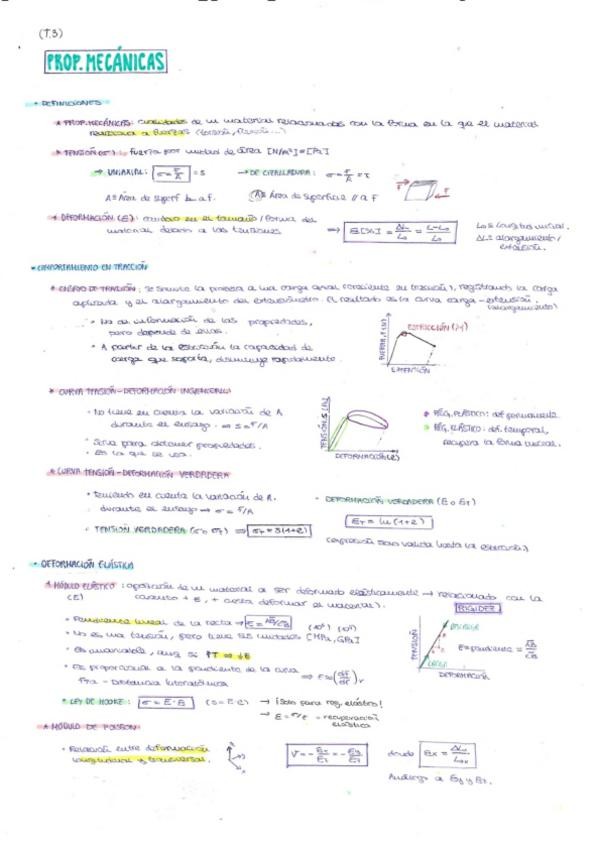 (T.3)
PROP. MECÁNICAS
• DEFINICIONES
* PROP. MECÁNICAS: cualidades de un material relacionadas con la forma en la que el material
reacciona a fuerzas (torsión, flexión...)
* TENSIÓN (σ): fuerza por unidad de área [N/m²] = [Pa]
→ UNIAXIAL: σ = F/A = s → DE CIZALLADURA: σ = F/A = τ
A = Área de superf ⊥ a F. A = Área de superficie // a F
* DEFORMACIÓN (E): cambio en el tamaño / forma del
material debido a las tensiones ⇒ E[%] = ΔL/L₀ = L-L₀/L₀
L₀ = longitud inicial.
ΔL = alargamiento /
extensión.
• COMPORTAMIENTO EN TRACCIÓN
* ENSAYO DE TRACCIÓN: se somete la probeta a una carga axial creciente (en tracción), registrando la carga
aplicada y el alargamiento del extensómetro. El resultado es la curva carga-extensión.
(alargamiento)
• No da información de las propiedades,
pero depende de ellas.
• A partir de la estricción la capacidad de
carga que soporta, disminuye rapidamente.
FUERZA, F (N)
ESTRICCIÓN (M)
EXTENSIÓN
* CURVA TENSIÓN-DEFORMACIÓN INGENIERIL
• No tiene en cuenta la variación de A
durante el ensayo. ⇒ S = F/A
• Sirve para obtener propiedades.
• Es la que se usa.
TENSIÓN, S [Pa]
DEFORMACIÓN (e)
REG. PLÁSTICO: def permanente
REG. ELÁSTICO: def. temporal,
recupera la forma inicial.
* CURVA TENSIÓN-DEFORMACIÓN VERDADERA
• teniendo en cuenta la variación de A.
durante el ensayo → σ = F/A
• TENSIÓN VERDADERA (σ o σT) ⇒ σT = S(1+e)
• DEFORMACIÓN VERDADERA (E o ET)
ET = ln(1+e)
(expresión solo válida hasta la estricción)
• DEFORMACIÓN ELÁSTICA
* MÓDULO ELÁSTICO: oposición de un material a ser deformado elásticamente → relacionado con la
(E) (cuanto + E, + cuesta deformar el material). RIGIDEZ
• Pendiente lineal de la recta → E = AB/CB (10⁶) (10⁹)
• No es una tensión, pero tiene sus unidades [MPa, GPa]
• Es invariable, aunq si ↑T ⇒ ↓E
• Es proporcional a la pendiente de la curva
Fza - Distancia Interatómica ⇒ E ∝ (dF/dr)r
TENSIÓN
DESCARGA
CARGA
DEFORMACIÓN
E = pendiente = AB/CB
* LEY DE HOOKE: σ = E·E (S = E·e) → ¡Solo para reg. elástico!
→ E = σ/E = recuperación
elástica
* MÓDULO DE POISSON
• Relación entre deformación
longitudinal y transversal.
V = - Ex/Ez = - Ey/Ez donde Ex = ΔLx/L₀x
Análogo a Ey y Ez.